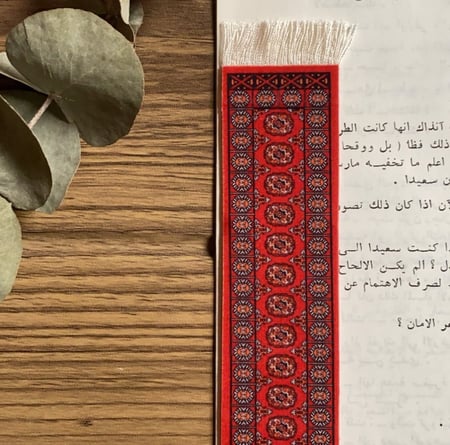 آنذاك انها كانت الطر
ذلك فظا ( بل ووقحا
اعلم ما تخفيــه مار
ن سعيدا .
آن اذا كان ذلك تصور
ا كنــت سعيدا الــى
دل ؟ ألم يكــن الالحاح
لصرف الاهتمام عن
ر الامان ؟